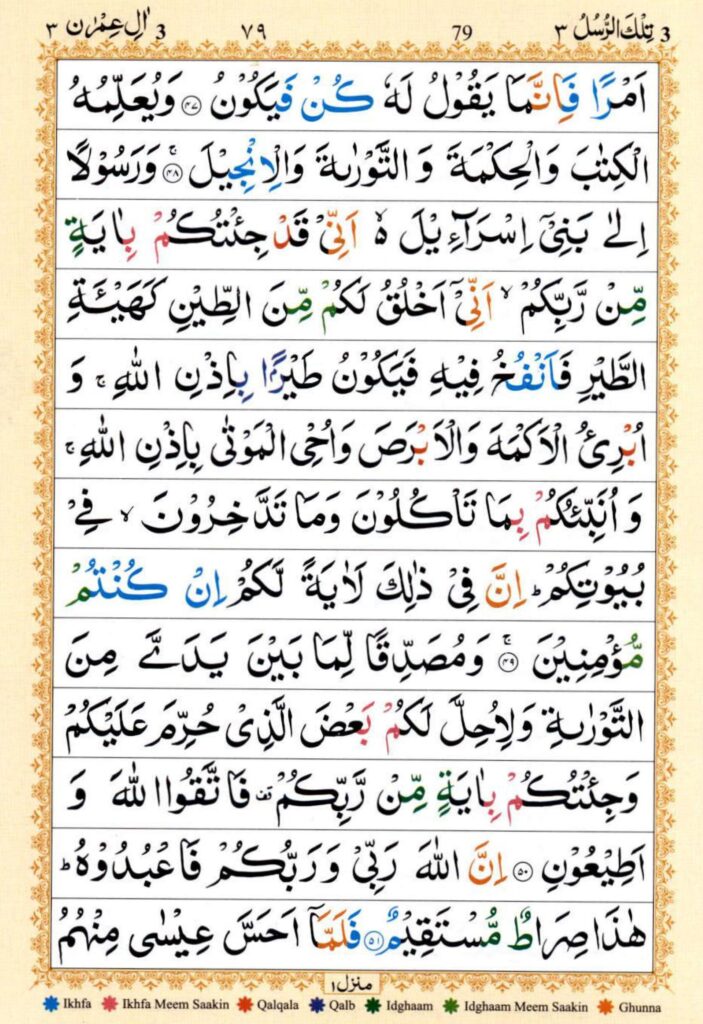 3 تِلْكَ الرُّسُلُ ٣ 79 ٧٩ 3 اٰلِ عِمْرٰن ٣
اَمْرًا فَاِنَّمَا يَقُوْلُ لَهٗ كُنْ فَيَكُوْنُ ۝٤٧ وَيُعَلِّمُهُ
الْكِتٰبَ وَالْحِكْمَةَ وَ التَّوْرٰىةَ وَالْاِنْجِيْلَ ۝٤٨ۚ وَرَسُوْلًا
اِلٰى بَنِيْٓ اِسْرَآءِيْلَ ۙ۬ اَنِّيْ قَدْ جِئْتُكُمْ بِاٰيَةٍ
مِّنْ رَّبِّكُمْ ۙ اَنِّيْٓ اَخْلُقُ لَكُمْ مِّنَ الطِّيْنِ كَهَيْـَٔةِ
الطَّيْرِ فَاَنْفُخُ فِيْهِ فَيَكُوْنُ طَيْرًۢا بِاِذْنِ اللّٰهِ ۚ وَ
اُبْرِئُ الْاَكْمَهَ وَالْاَبْرَصَ وَاُحْيِ الْمَوْتٰى بِاِذْنِ اللّٰهِ ۚ
وَ اُنَبِّئُكُمْ بِمَا تَاْكُلُوْنَ وَمَا تَدَّخِرُوْنَ ۙ فِيْ
بُيُوْتِكُمْ ؕ اِنَّ فِيْ ذٰلِكَ لَاٰيَةً لَّكُمْ اِنْ كُنْتُمْ
مُّؤْمِنِيْنَ ۝٤٩ۚ وَمُصَدِّقًا لِّمَا بَيْنَ يَدَيَّ مِنَ
التَّوْرٰىةِ وَلِاُحِلَّ لَكُمْ بَعْضَ الَّذِيْ حُرِّمَ عَلَيْكُمْ
وَجِئْتُكُمْ بِاٰيَةٍ مِّنْ رَّبِّكُمْ قف فَاتَّقُوا اللّٰهَ وَ
اَطِيْعُوْنِ ۝٥٠ اِنَّ اللّٰهَ رَبِّيْ وَرَبُّكُمْ فَاعْبُدُوْهُ ؕ
هٰذَا صِرَاطٌ مُّسْتَقِيْمٌ ۝٥١ فَلَمَّآ اَحَسَّ عِيْسٰى مِنْهُمُ
منزل ١
Ikhfa Ikhfa Meem Saakin Qalqala Qalb Idghaam Idghaam Meem Saakin Ghunna